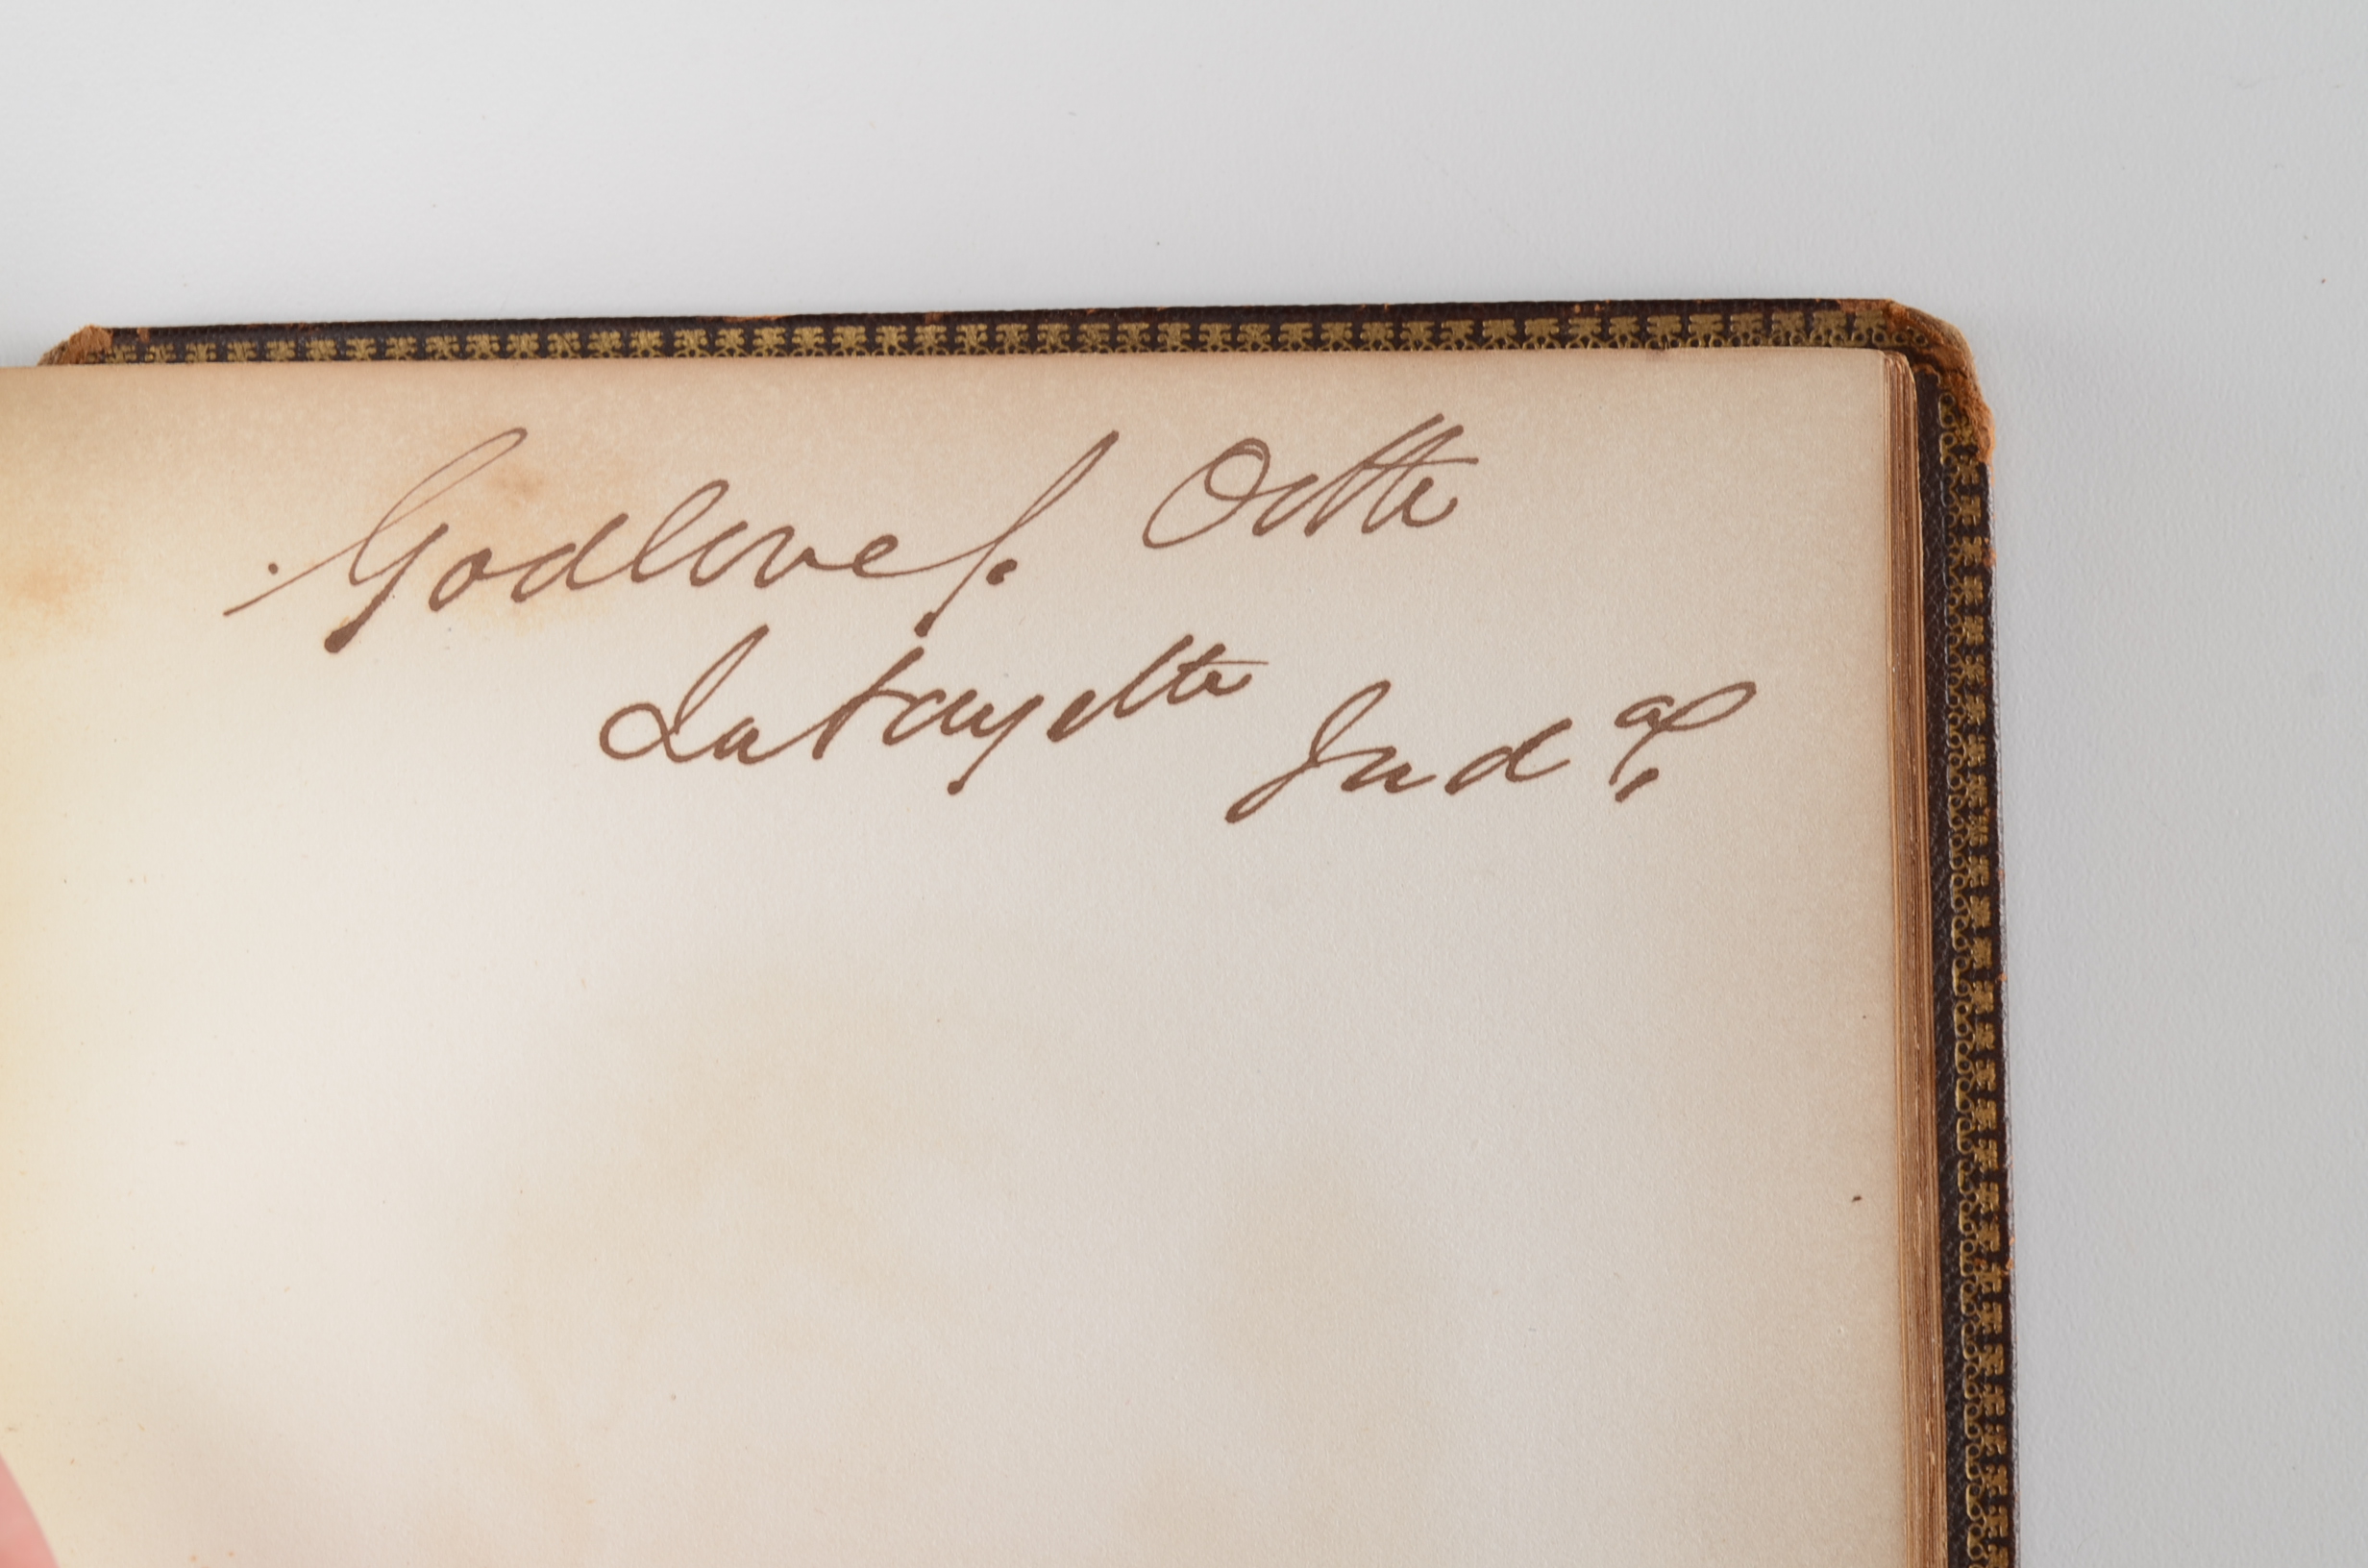 Godlove S. Orth
Lafayette Ind^a.